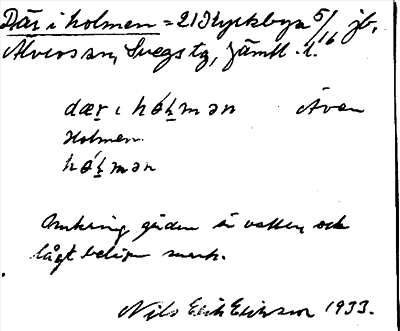 Där i holmen = 21 Kyckbyn 5/16 jb,
Alvros sn, Svegs tg, Jämtl. l.
dær i hólmən Även
Holmen.
hólmən
Omkring gården är vatten och
lågt belägen mark.
Nils Erik Eriksson 1933.